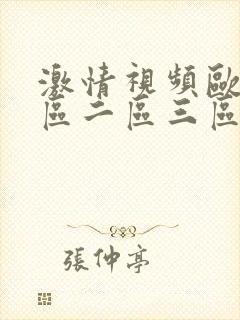 激情視頻歐
區二區三區
張仲亭